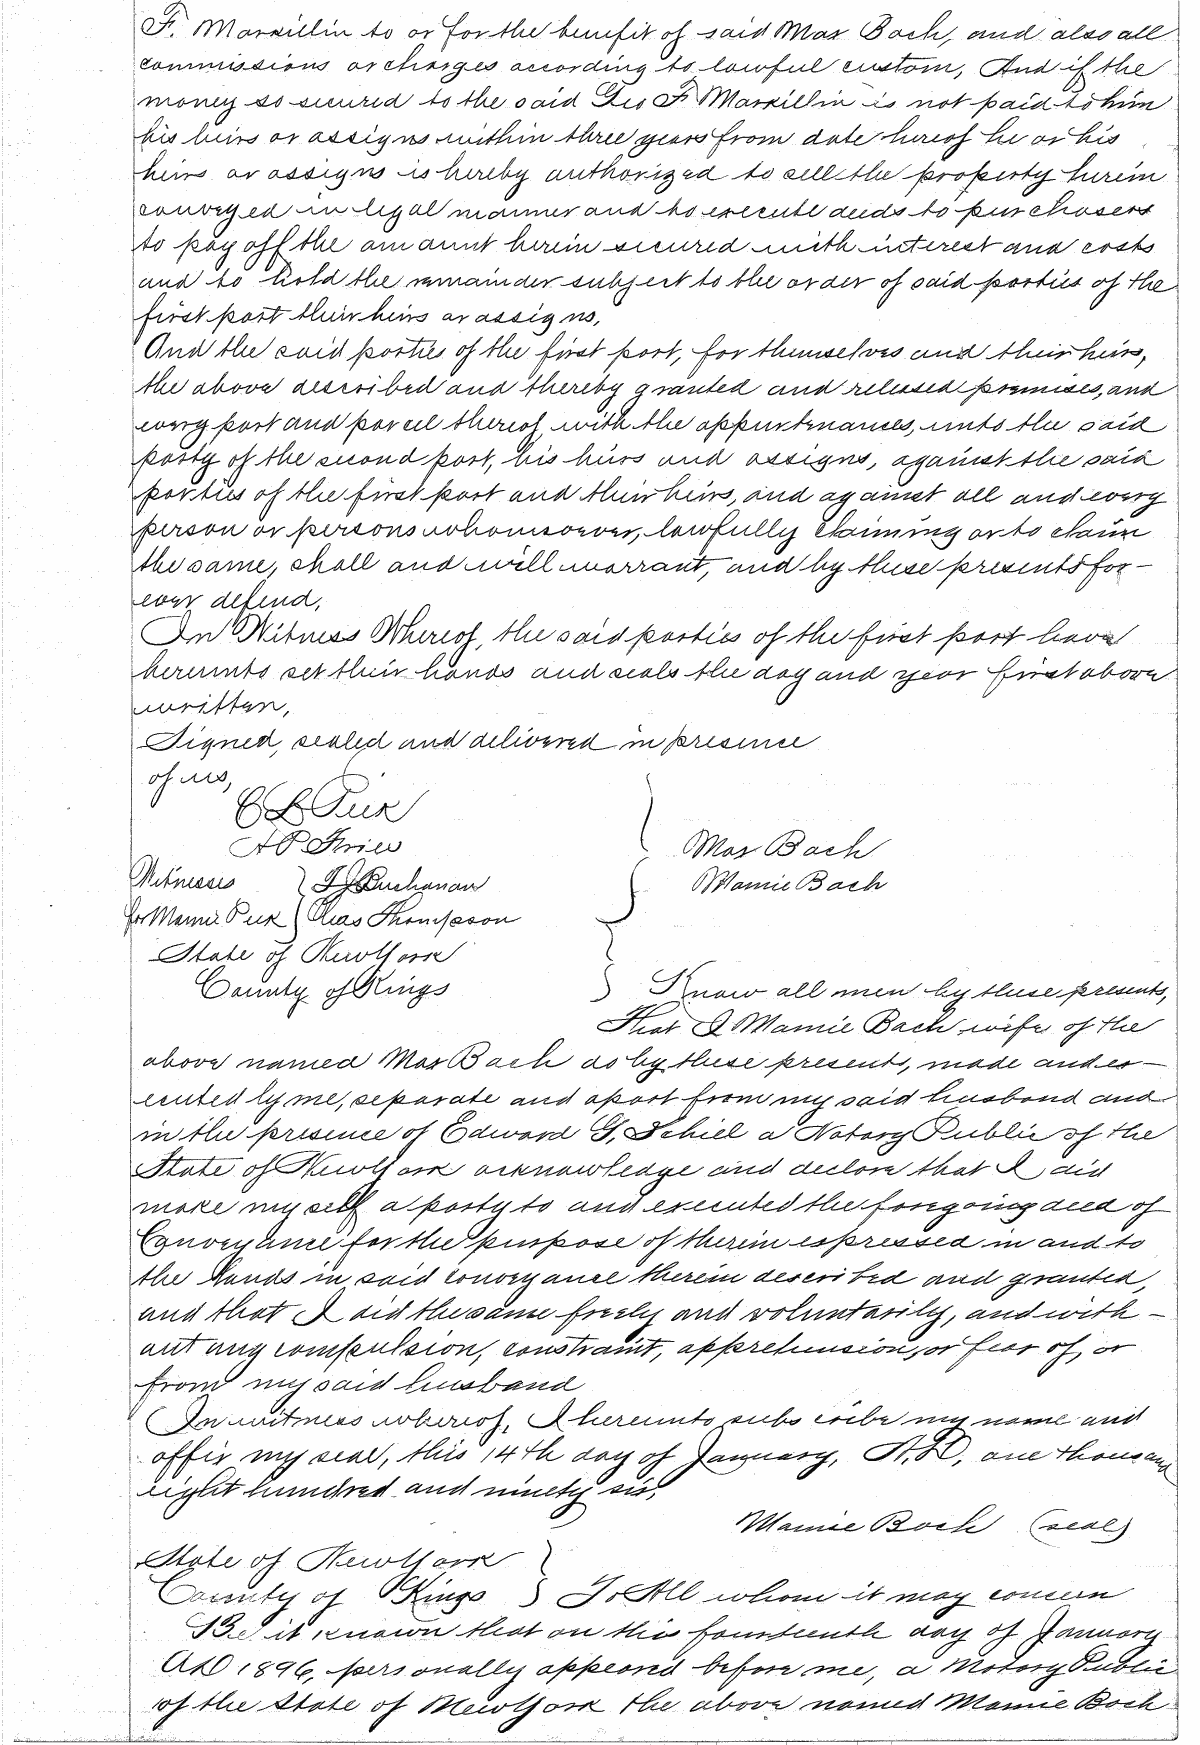 F. Marxillin to or for the benefit of said Max Bach, and also all
commissions or charges according to lawful custom, And if the
money so secured to the said Geo F. Marxillin is not paid to him
his heirs or assigns within three years from date hereof he or his
heirs or assigns is hereby authorized to sell the property herein
conveyed in legal manner and to execute deeds to purchasers
to pay off the amount herein secured with interest and costs
and to hold the remainder subject to the order of said parties of the
first part their heirs or assigns,
And the said parties of the first part, for themselves and their heirs,
the above described and thereby granted and released premises, and
every part and parcel thereof, with the appurtenances, unto the said
party of the second part, his heirs and assigns, against the said
parties of the first part and their heirs, and against all and every
person or persons whomsoever, lawfully claiming or to claim
the same, shall and will warrant, and by these presents for-
ever defend,
In Witness Whereof, the said parties of the first part have
hereunto set their hands and seals the day and year first above
written,
Signed, sealed and delivered in presence
of us,
E L Peck
A P Fries
Max Bach
Witnesses } T J Buchanan
Mamie Bach
for Mamie Peck } Chas Thompson
State of New York
County of Kings } Know all men by these presents,
That I Mamie Bach wife of the
above named Max Bach do by these present, made and ex-
ecuted by me, separate and apart from my said husband and
in the presence of Edward G. Schiel a Notary Public of the
State of New York acknowledge and declare that I did
make myself a party to and executed the foregoing deed of
Conveyance for the purpose of therein expressed in and to
the lands in said conveyance therein described and granted,
and that I did the same freely and voluntarily, and with-
out any compulsion, constraint, apprehension, or fear of, or
from my said husband
In witness whereof, I hereunto subscribe my name and
affix my seal, this 14th day of January, A.D, one thousand
eight hundred and ninety six,
Mamie Bach (seal)
State of New York
County of Kings } To All whom it may concern
Be it known that on this fourteenth day of January
AD 1896, personally appeared before me, a Notary Public
of the State of New York the above named Mamie Bach